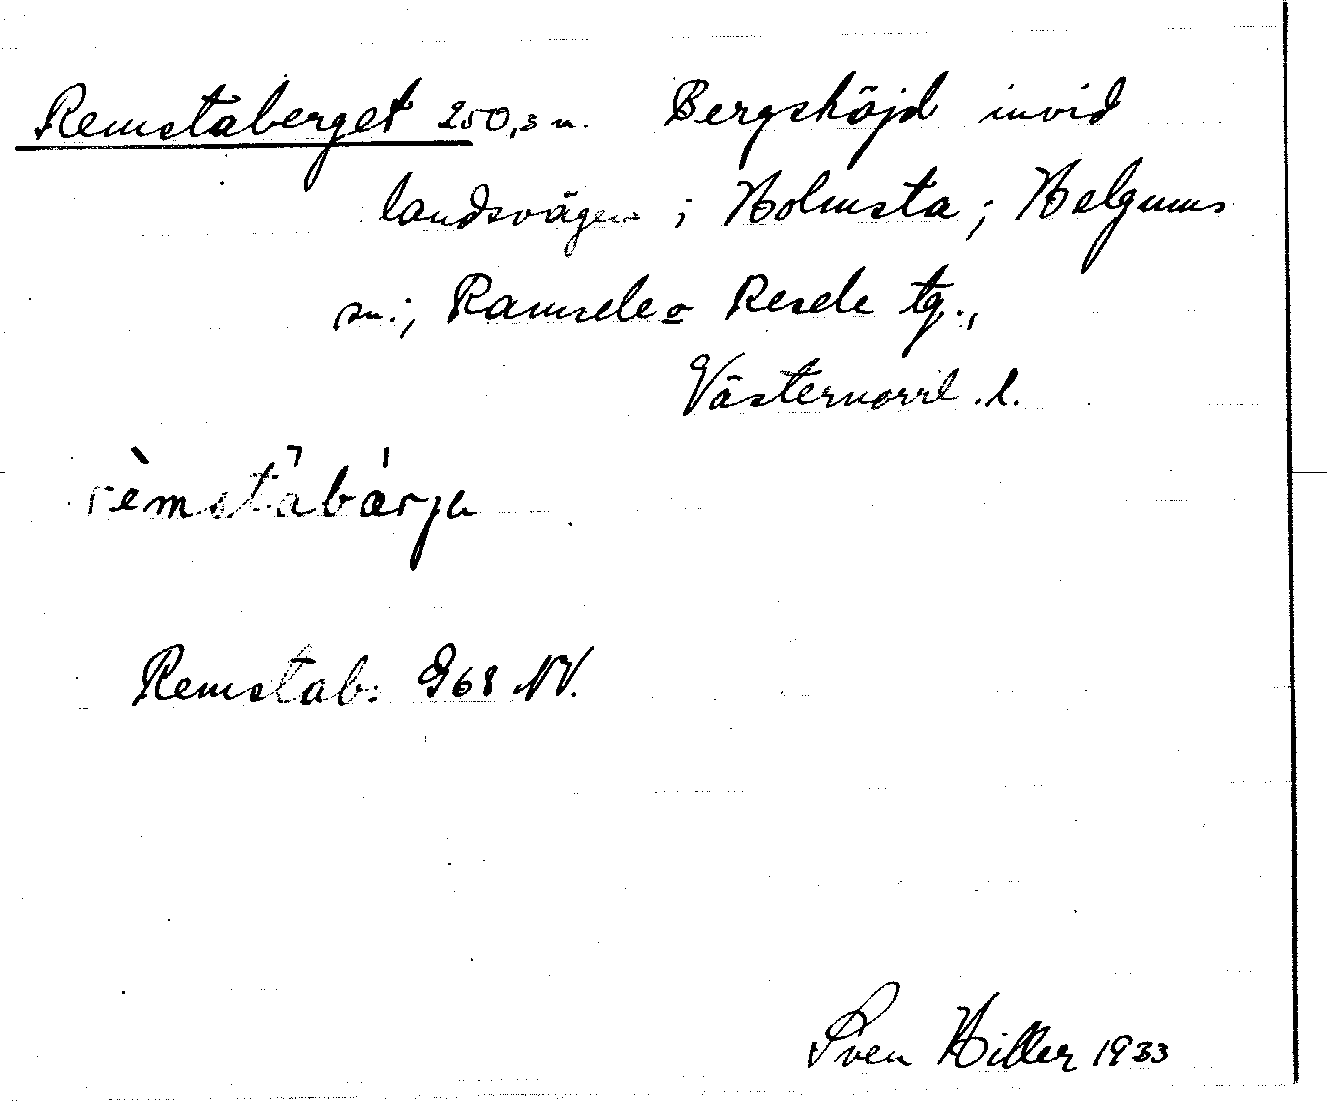 Remstaberget 250,3 m. Bergshöjd invid
landsvägen i Holmsta; Helgums
sn.; Ramsele o Resele tg.,
Västernorrl. l.
rèmstabárja
Remstab: G68 NV.
Sven Hiller 1933